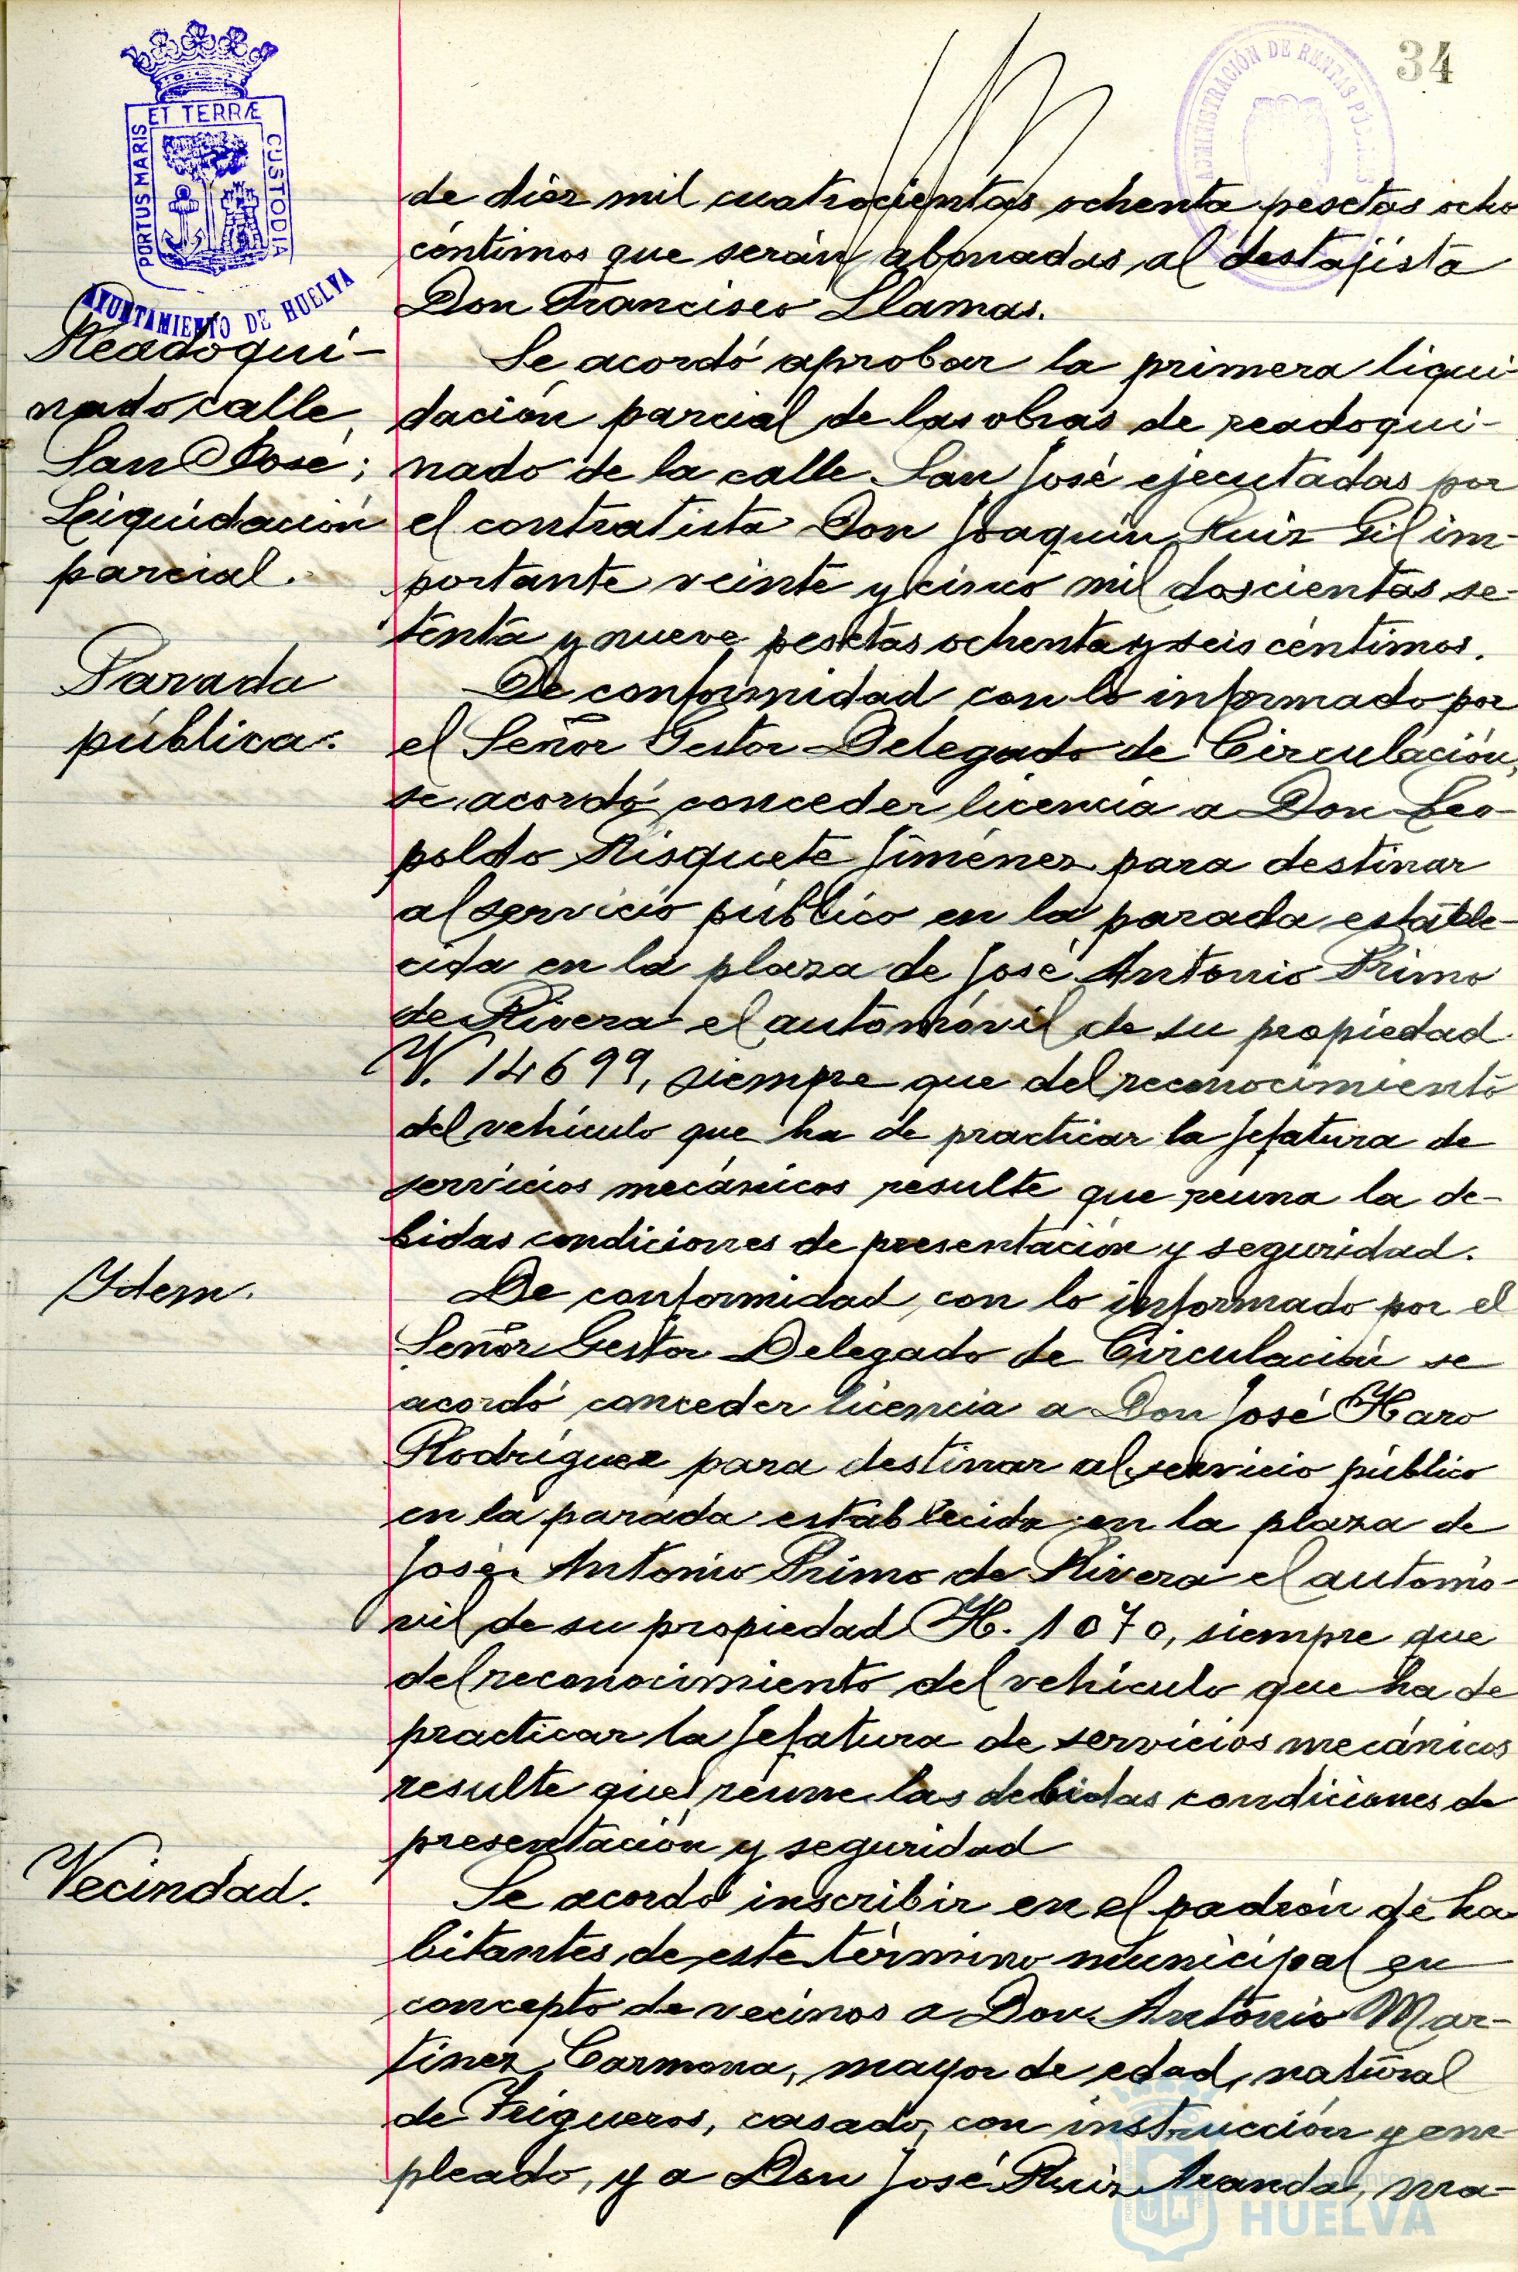 34
ET TERRÆ
PORTUS MARIS
CUSTODIA
AYUNTAMIENTO DE HUELVA
ADMINISTRACIÓN DE RENTAS PÚBLICAS
de diez mil cuatrocientas ochenta pesetas ocho
céntimos que serán abonadas al destajista
Don Francisco Llamas.
Readoqui-
nado calle
San José;
Liquidación
parcial.
Se acordó aprobar la primera liqui-
dación parcial de las obras de readoqui-
nado de la calle San José ejecutadas por
el contratista Don Joaquín Ruiz Gil im-
portante veinte y cinco mil doscientas se-
tenta y nueve pesetas ochenta y seis céntimos.
Parada
pública.
De conformidad con lo informado por
el Señor Gestor Delegado de Circulación,
se acordó conceder licencia a Don Leo-
poldo Risquete Jiménez para destinar
al servicio público en la parada estable-
cida en la plaza de José Antonio Primo
de Rivera el automóvil de su propiedad
V. 14699, siempre que del reconocimiento
del vehículo que ha de practicar la Jefatura de
servicios mecánicos resulte que reuna la de-
bidas condiciones de presentación y seguridad.
Ydem.
De conformidad con lo informado por el
Señor Gestor Delegado de Circulación se
acordó conceder licencia a Don José Haro
Rodríguez para destinar al servicio público
en la parada establecida en la plaza de
José Antonio Primo de Rivera el automó-
vil de su propiedad H. 1070, siempre que
del reconocimiento del vehículo que ha de
practicar la Jefatura de servicios mecánicos
resulte que reune las debidas condiciones de
presentación y seguridad
Vecindad.
Se acordó inscribir en el padrón de ha-
bitantes de este término municipal en
concepto de vecinos a Don Antonio Mar-
tinez Carmona, mayor de edad, natural
de Trigueros, casado, con instrucción y em-
pleado, y a Don José Ruiz Aranda, ma-
Ayuntamiento de
HUELVA